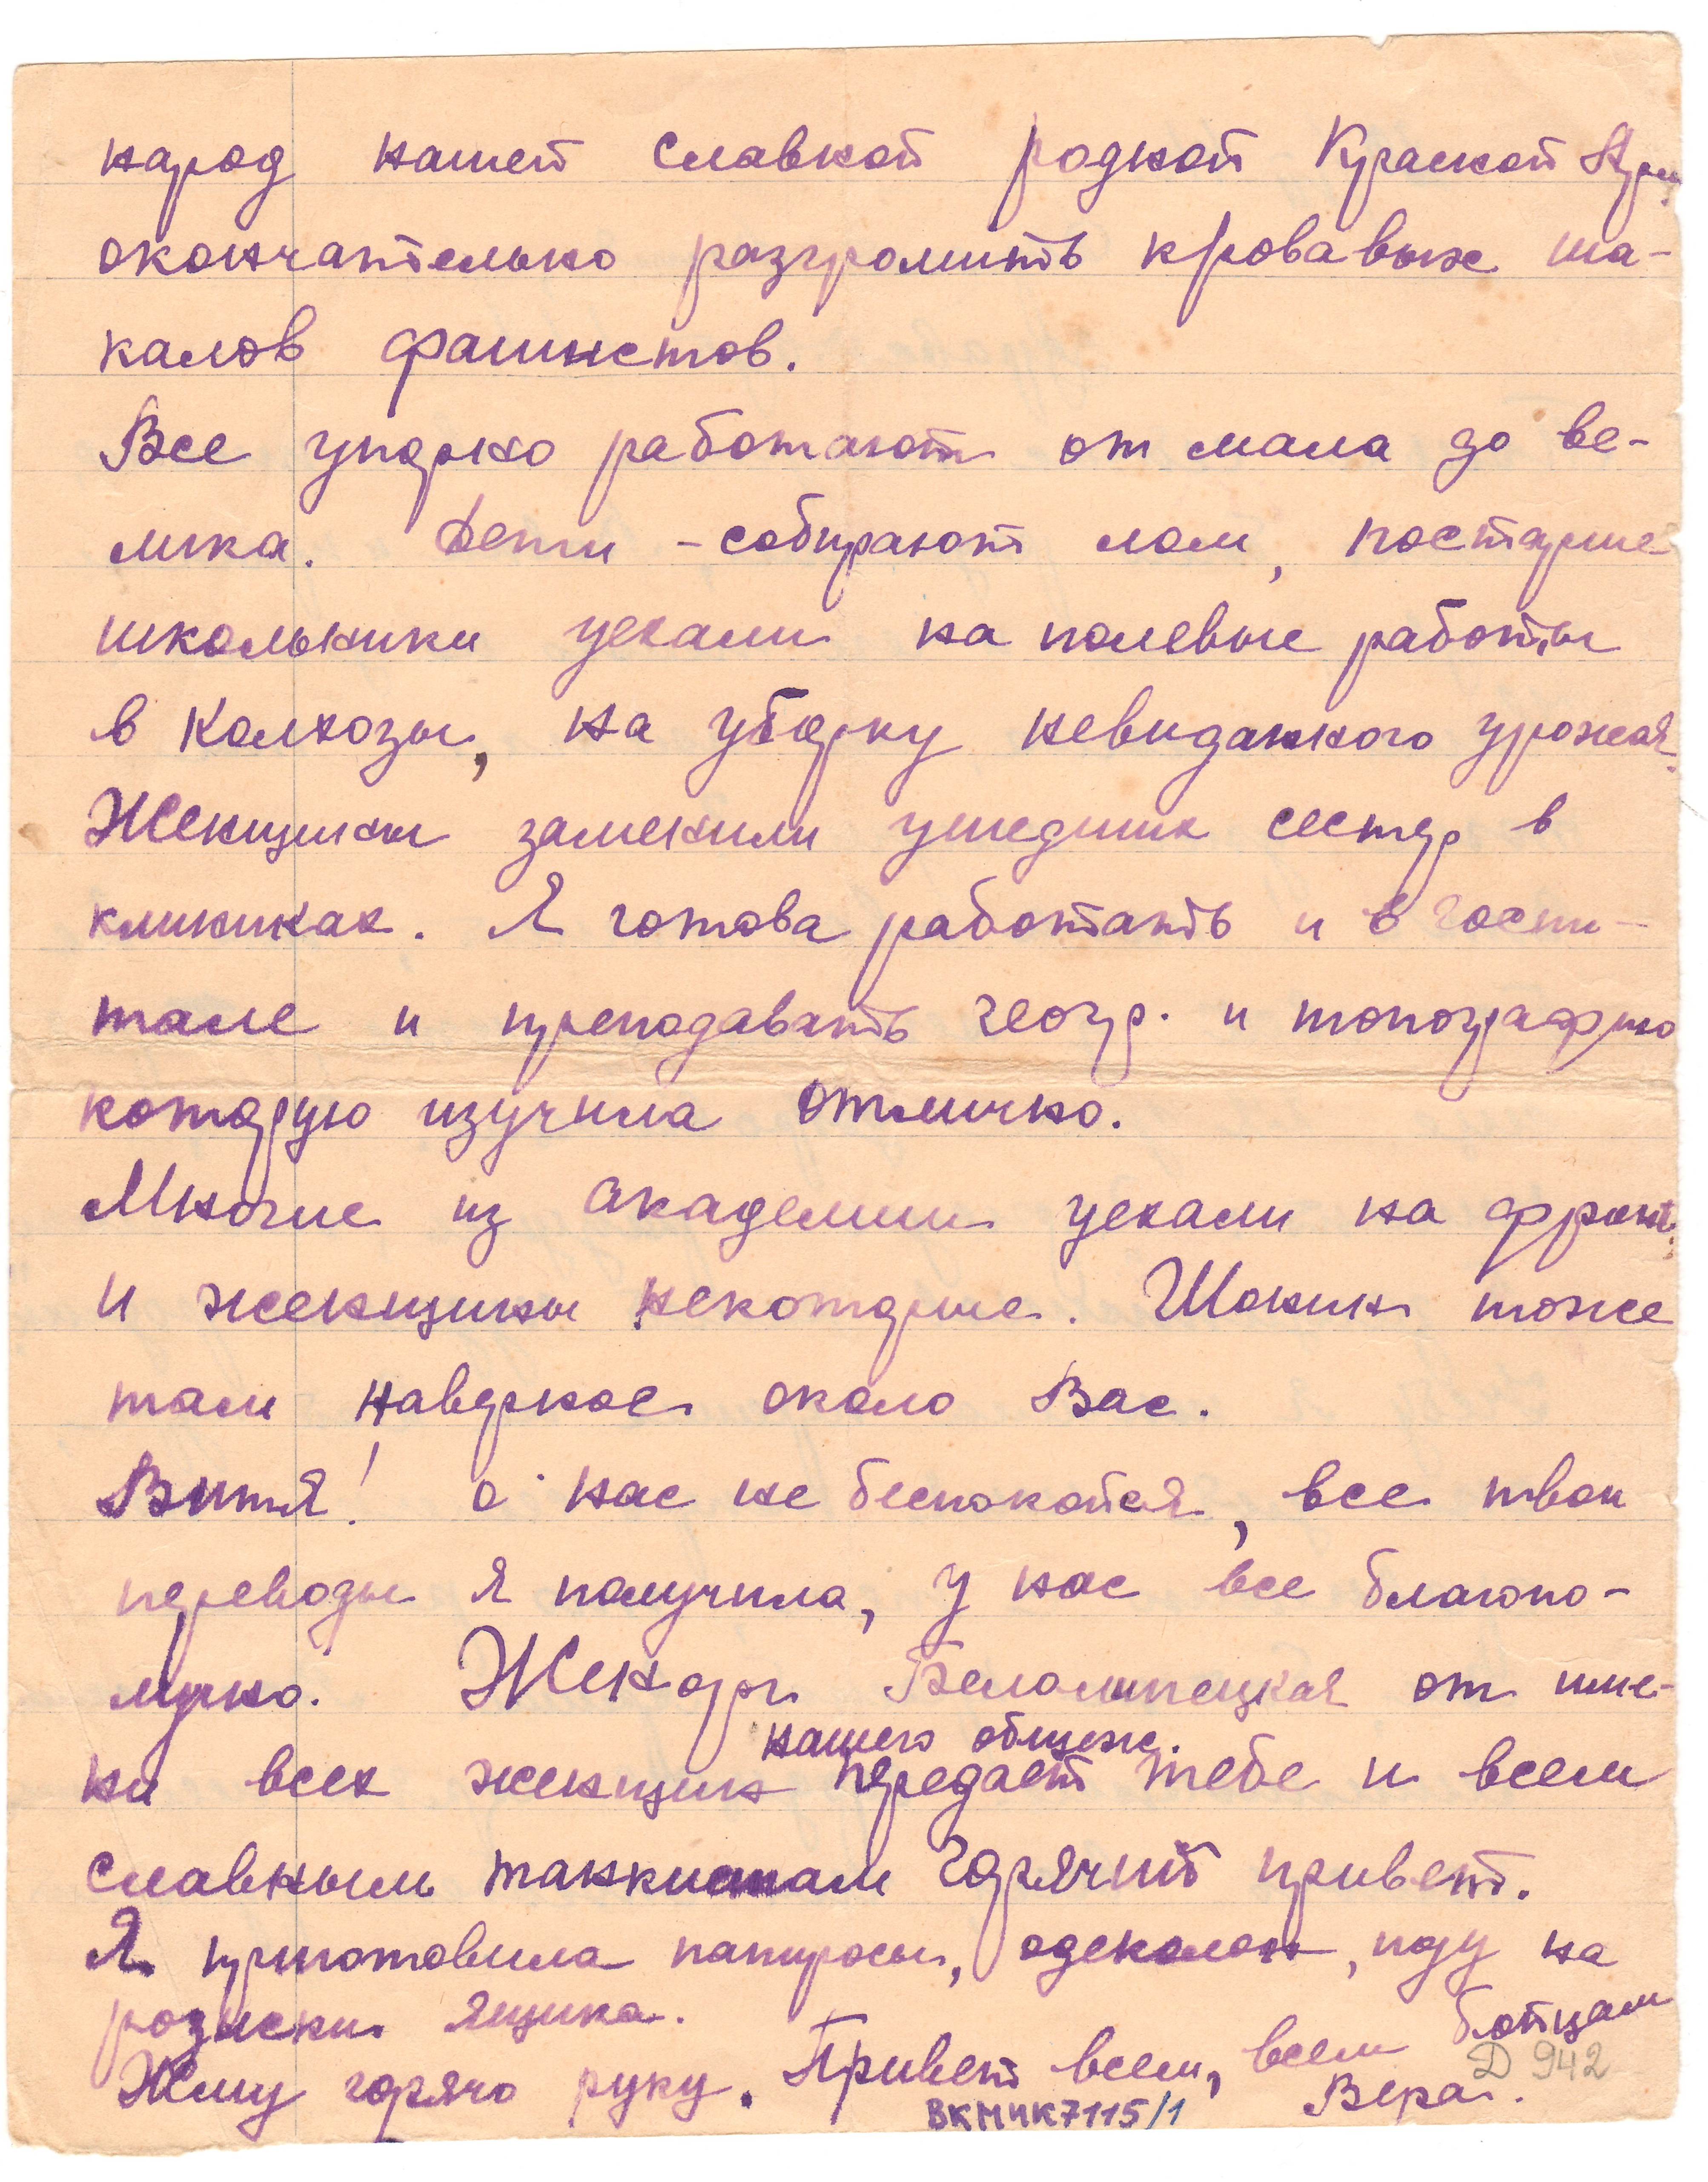 народ нашей славной родной Красной Арм.
окончательно разгромить кровавых ша-
калов фашистов.
Все упорно работают от мала до ве-
лика. Дети - собирают лом, постарше
школьники уехали на полевые работы
в колхозы, на уборку невиданного урожая.
Женщины заменили ушедших сестер в
клиниках. Я готова работать и в госпи-
тале и преподавать геогр. и топографию
которую изучила отлично.
Многие из академии уехали на фронт,
и женщины некоторые. Шонин тоже
там наверное около Вас.
Витя! о нас не беспокойся, все твои
переводы я получила, у нас все благопо-
лучно. Женорг. Беломыпецкая от име-
нашего общеж.
ни всех женщин передает тебе и всем
славным танкистам горячий привет.
Я приготовила папиросы, одеколон, иду на
розыски ящика.
Жму горячо руку. Привет всем, всем бойцам
Вера.
Д 942
ВКМ ЧК7115/1